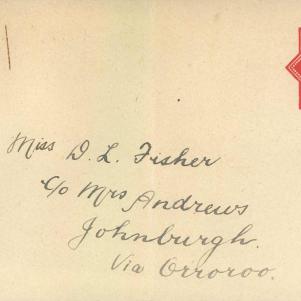 Miss D. L. Fisher
c/o Mrs Andrews
Johnburgh.
Via Orroroo.